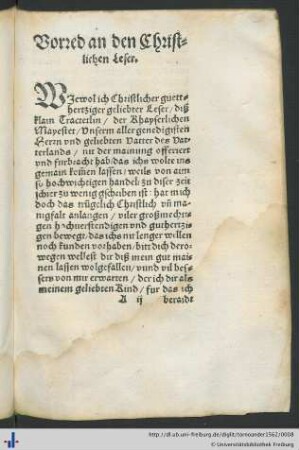 Vorred an den Christ-
lichen Leser.
WIewol ich Christlicher guett-
hertziger geliebter Leser / diß
klain Tractetlin / der Khayserlichen
Mayestet / Vnserm aller genedigisten
Herrn vnd geliebten Vatter des Vat-
terlands / nit der mainung offeriert
vnd furbracht hab / das ichs wolte ins
gemain kommen lassen / weils von aim
so hochwichtigen handel zu diser zeit
schier zu wenig gschriben ist: hat mich
doch das Christlich vñ ma-
nigfalt anlangen / viler großmechti-
gen hochuerstendigen vnd guthertzi-
gen bewegt / das ichs nit lenger willen
noch kunden vorhaben / bitt dich dero-
wegen wellest dir diß mein gut mai-
nen lassen wolgefallen / vnnd vil bes-
sers von mir erwarten / der ich dir als
meinem geliebten Kind / fur das ich
A ij beraidt
http://dl.ub.uni-freiburg.de/diglit/tornoander1562/0008
© Universitätsbibliothek Freiburg